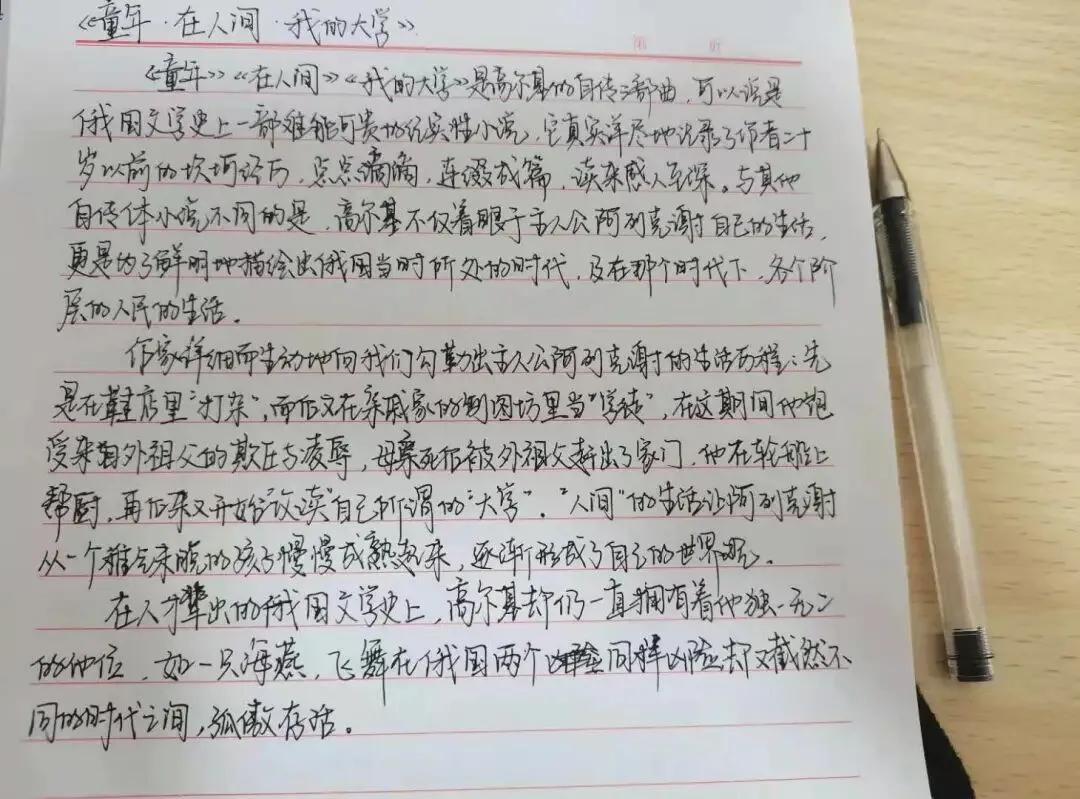 《童年·在人间·我的大学》
第 页
《童年》《在人间》《我的大学》是高尔基的自传三部曲，可以说是
俄国文学史上一部难能可贵的纪实性小说，它真实详尽地记录了作者二十
岁以前的坎坷经历，点点滴滴，连缀成篇，读来感人至深。与其他
自传体小说不同的是，高尔基不仅着眼于主人公阿列克谢自己的生活，
更是为了鲜明地描绘出俄国当时所处的时代，及在那个时代下，各个阶
层的人民的生活。
作家详细而生动地向我们勾勒出主人公阿列克谢的生活历程：先
是在鞋店里"打杂"，而后又在亲戚家的制图坊里当"学徒"，在这期间他饱
受来自外祖父的欺压与凌辱，母亲死后被外祖父赶出了家门，他在轮船上
帮厨，再后来又开始"攻读"自己所谓的"大学"。"人间"的生活让阿列克谢
从一个稚气未脱的孩子慢慢成熟起来，逐渐形成了自己的世界观。
在人才辈出的俄国文学史上，高尔基却仍一直拥有着他独一无二
的地位，如一只海燕，飞舞在俄国两个同样凶险却又截然不
同的时代之间，孤傲存活。